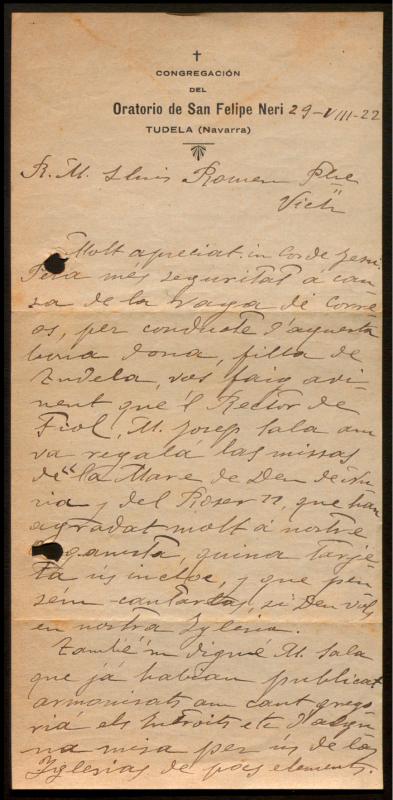 CONGREGACIÓN
DEL
Oratorio de San Felipe Neri 29-VIII-22
TUDELA (Navarra)
R. M. Lluis Romeu Pbre
Vich
Molt apreciat in Corde Jesu:
Perá més seguritat a cau-
sa de la vaga de corre-
os, per conducte d'aquesta
bona dona, filla de
Tudela, vos faig avi-
nent que'l Rector de
Fiol, M. Josep Sala am
va regalá las missas
de "la Mare de Deu de Nu-
ria y del Roser", que han
agradat molt á nostre
organista, quina tarje-
ta us incloc, y que pen-
sém cantarlas, si Deu vol,
en nostra Iglesia.
També'm digué M. Sala
que já habian publicat
armonisats am cant grego-
riá els Introits etc d'algu-
na misa per ús de las
Iglesias de pocs elements.